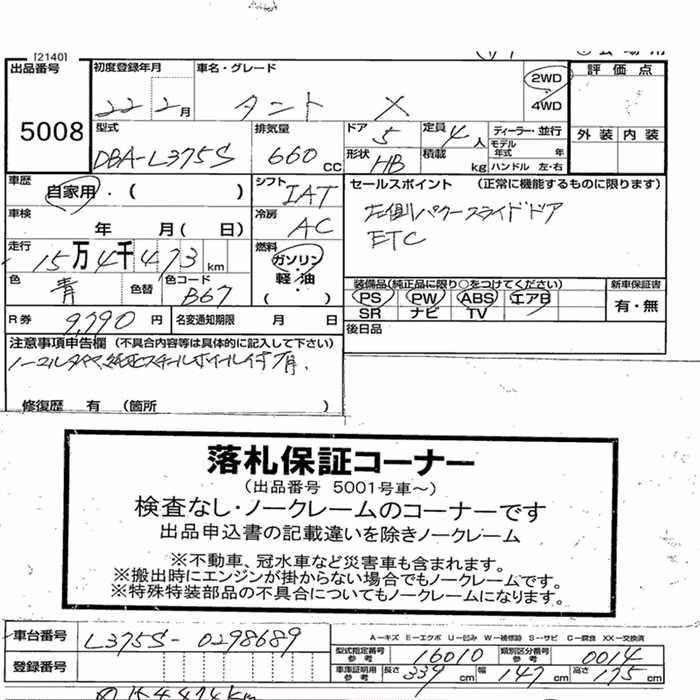 [2140]
出品番号 初度登録年月 車名・グレード 2WD 評価点
5008 22 2月 タント X 4WD 外装 内装
型式 排気量 ドア 定員 ディーラー・並行
DBA-L375S 660 CC 5 4人 モデル年式 年
形状 HB 積載 kg ハンドル 左・右
車歴 自家用・( ) シフト IAT セールスポイント (正常に機能するものに限ります)
車検 年 月(日) 冷房 AC 左側パワースライドドア
走行 15万4千473km 燃料 ガソリン・軽・油 ( ) ETC
色 青 色替 色コード B67
装備品(純正品に限り○をつけてください) 新車保証書
PS PW ABS エアB 有・無
SR ナビ TV
R券 9,790円 名変通知期限 月 日 後日品
注意事項申告欄 (不具合内容等は具体的に記入して下さい)
ノーマルタイヤ、純正スチールホイール付有、
修復歴 有 (箇所 )
落札保証コーナー
(出品番号 5001号車~)
検査なし・ノークレームのコーナーです
出品申込書の記載違いを除きノークレーム
※不動車、冠水車など災害車も含まれます。
※搬出時にエンジンが掛からない場合でもノークレームです。
※特殊特装部品の不具合についてもノークレームになります。
車台番号 L375S-0298689 A-キズ E-エクボ U-凹み W-補修跡 S-サビ C-腐食 XX-交換済
型式指定番号 参考 16010 類別区分番号 参考 0014
登録番号 車庫証明用 参考 長さ 339cm 幅 147cm 高さ 175cm